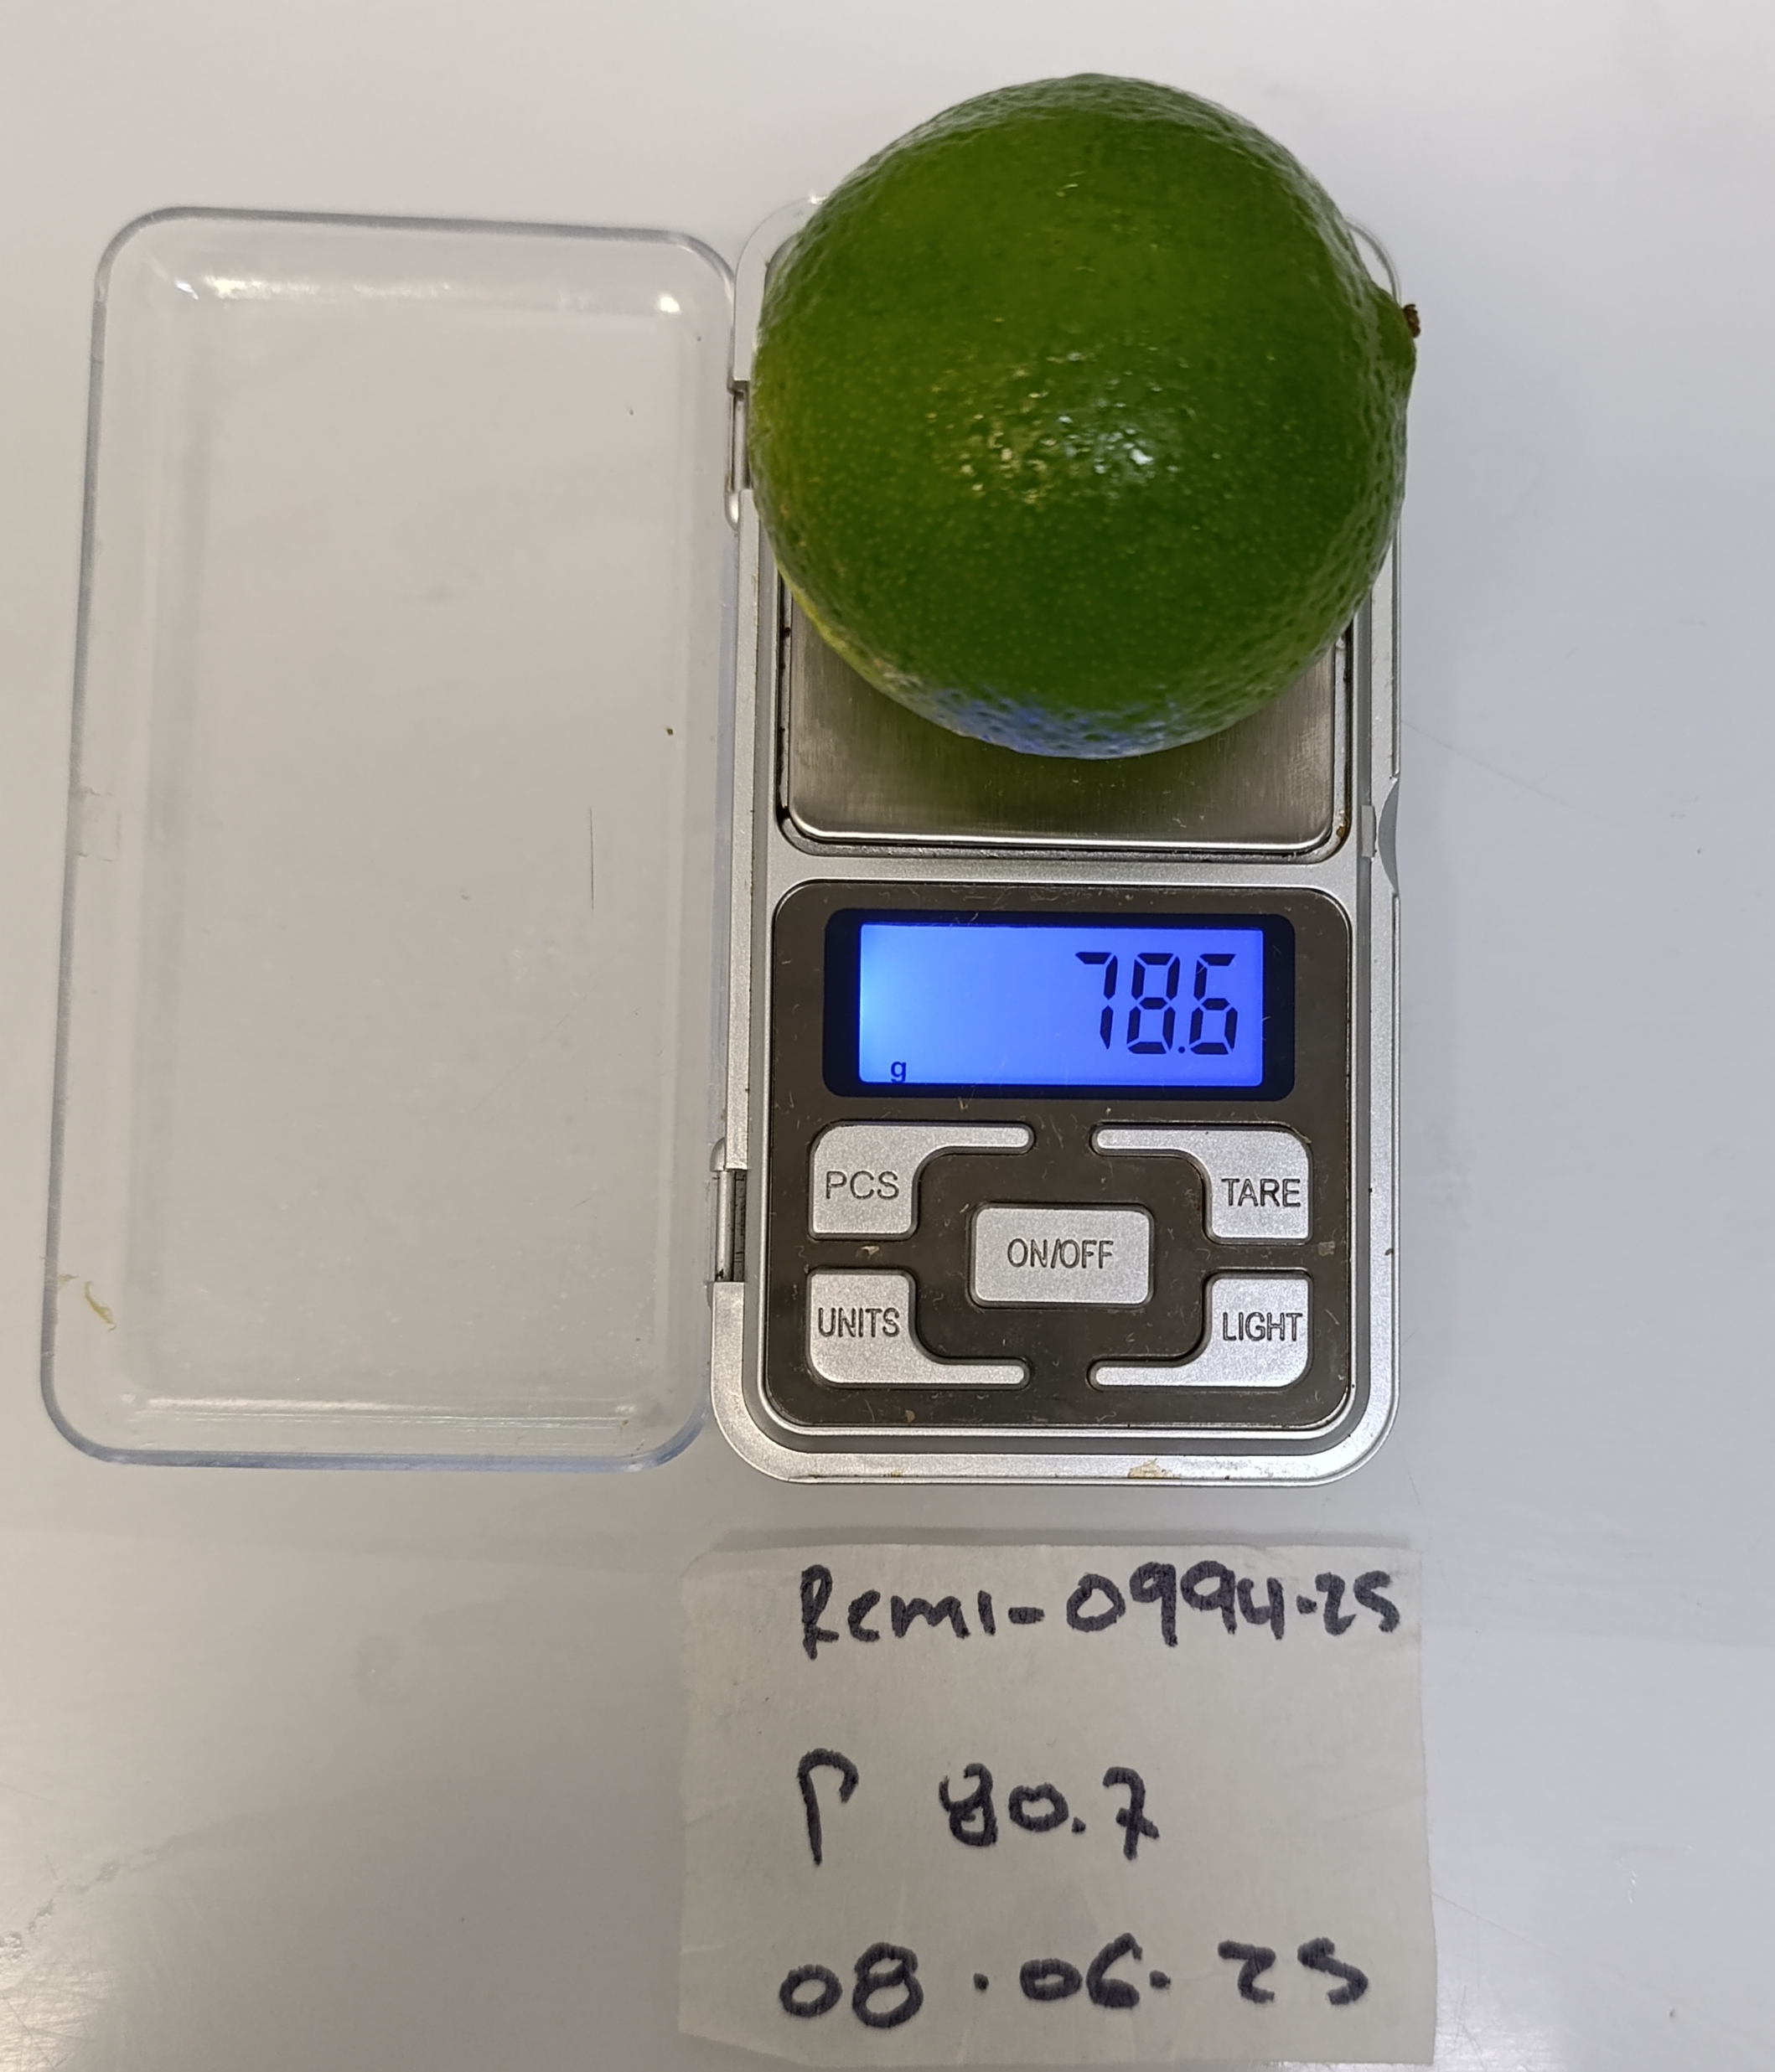 78.6
g
PCS
TARE
ON/OFF
UNITS
LIGHT
Remi-0994-25
P 80.7
08.06.25